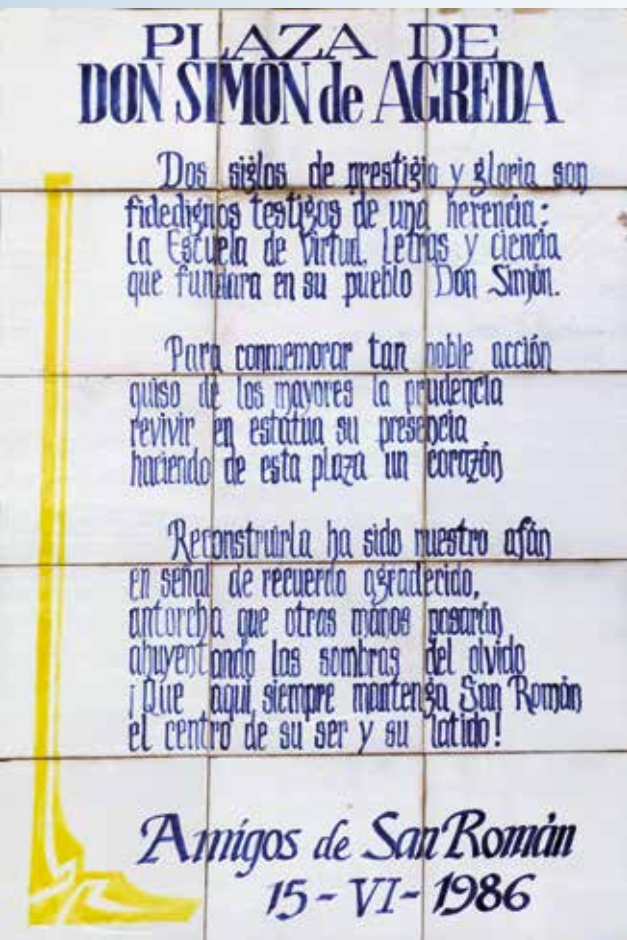 PLAZA DE
DON SIMON de AGREDA
Dos siglos de prestigio y gloria son
fidedignos testigos de una herencia:
la Escuela de Virtud, Letras y ciencia
que fundara en su pueblo Don Simón.
Para conmemorar tan noble acción
quiso de los mayores la prudencia
revivir en estatua su presencia
haciendo de esta plaza un corazón
Reconstruirla ha sido nuestro afán
en señal de recuerdo agradecido,
antorcha que otras manos pasarán
ahuyentando las sombras del olvido
¡Que aquí siempre mantenga San Román
el centro de su ser y su latido!
Amigos de San Román
15-VI-1986